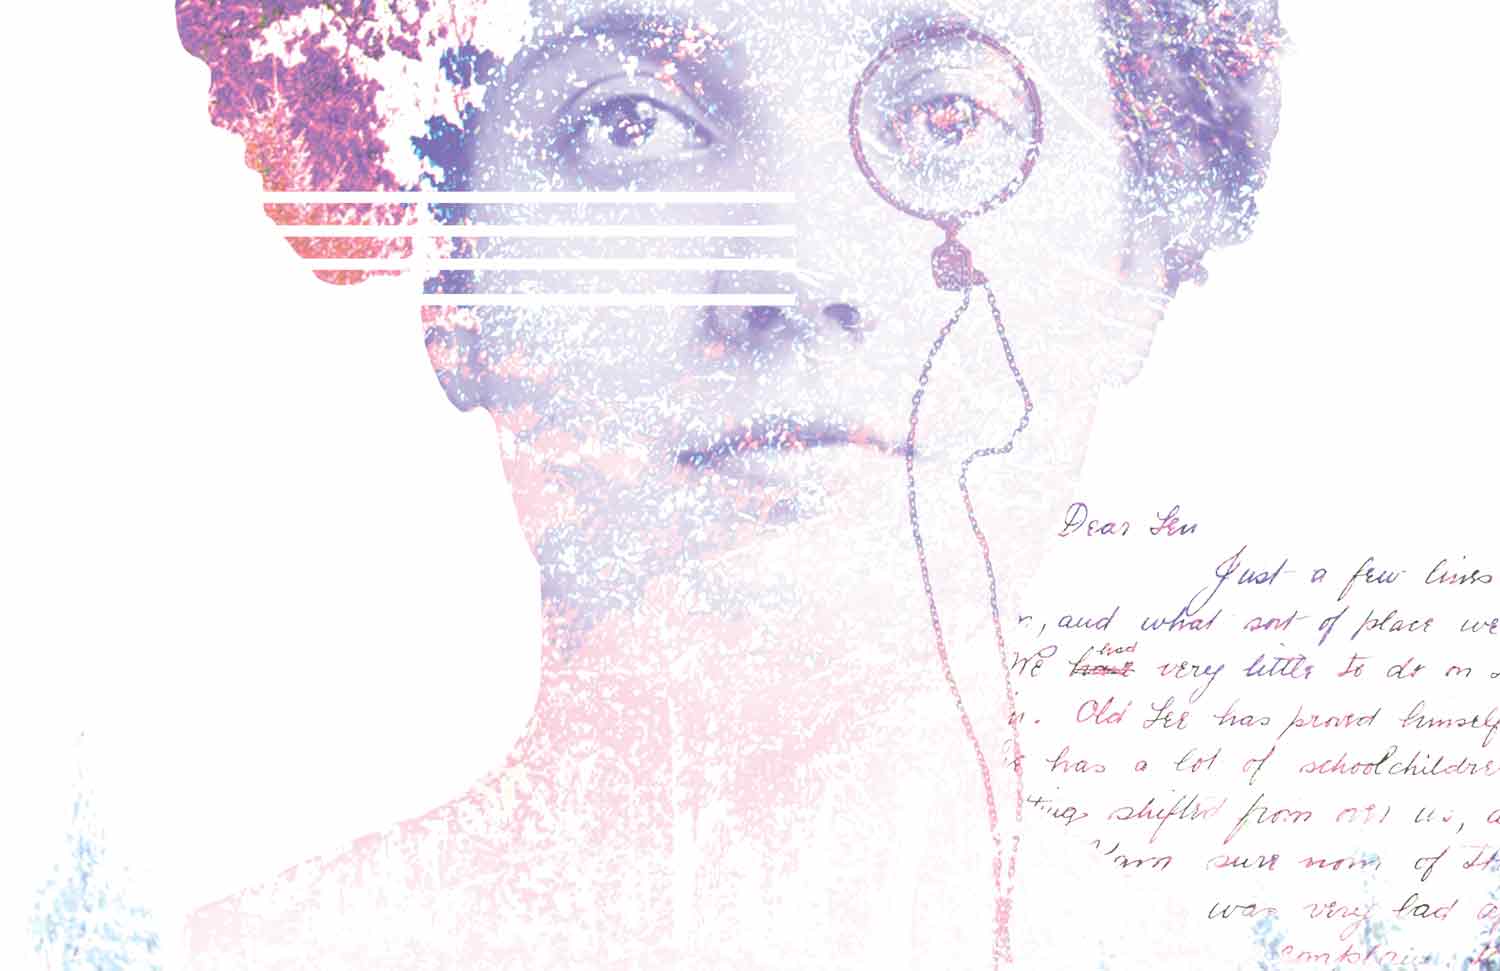 Dear Len
Just a few lines
, and what sort of place we
We have had very little to do on
. Old Lee has proved himself
has a lot of schoolchildre
ting shifted from over us, a
I'm sure none of
was very bad